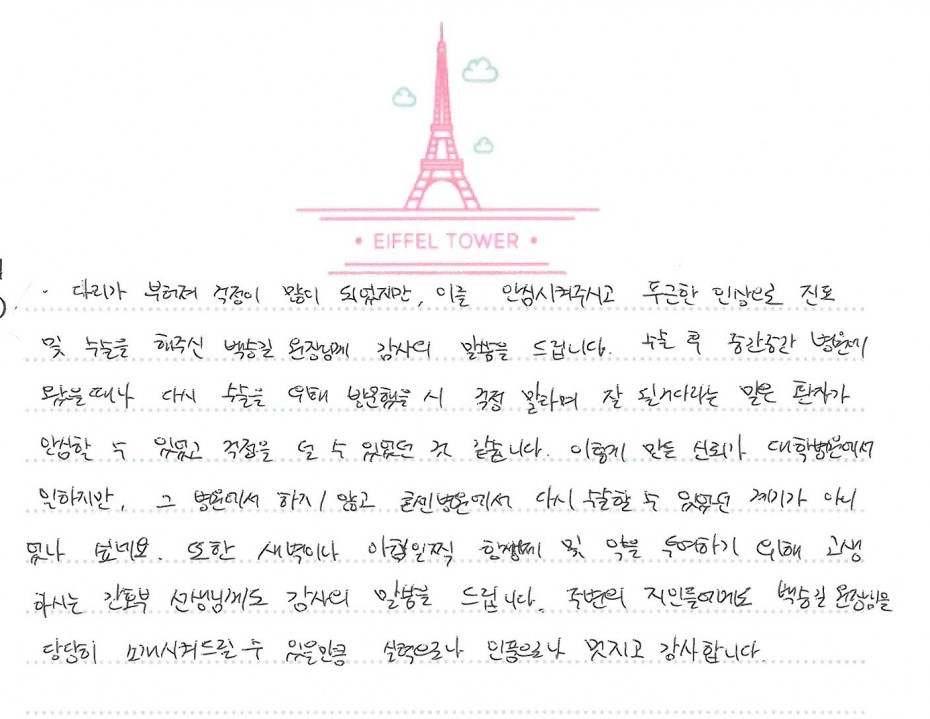 EIFFEL TOWER
다리가 부러져 걱정이 많이 되었지만, 이를 안심시켜주시고 푸근한 인상으로 진료
및 수술을 해주신 백승길 원장님께 감사의 말씀을 드립니다. 수술 후 중간중간 병원에
왔을때나 다시 수술을 위해 방문했을 시 걱정 말라며 잘 될거다라는 말은 환자가
안심할 수 있었고 걱정을 덜 수 있었던 것 같습니다. 이렇게 만든 신뢰가 대학병원에서
일하지만, 그 병원에서 하지 않고 본센병원에서 다시 수술할 수 있었던 계기가 아니
었나 싶네요. 또한 새벽이나 아침일찍 항생제 및 약을 투여하기 위해 고생
하시는 간호부 선생님께도 감사의 말씀을 드립니다. 주변의 지인들에게도 백승길 원장님을
당당히 소개시켜드릴 수 있을만큼 실력으로나 인품으로나 멋지고 감사합니다.